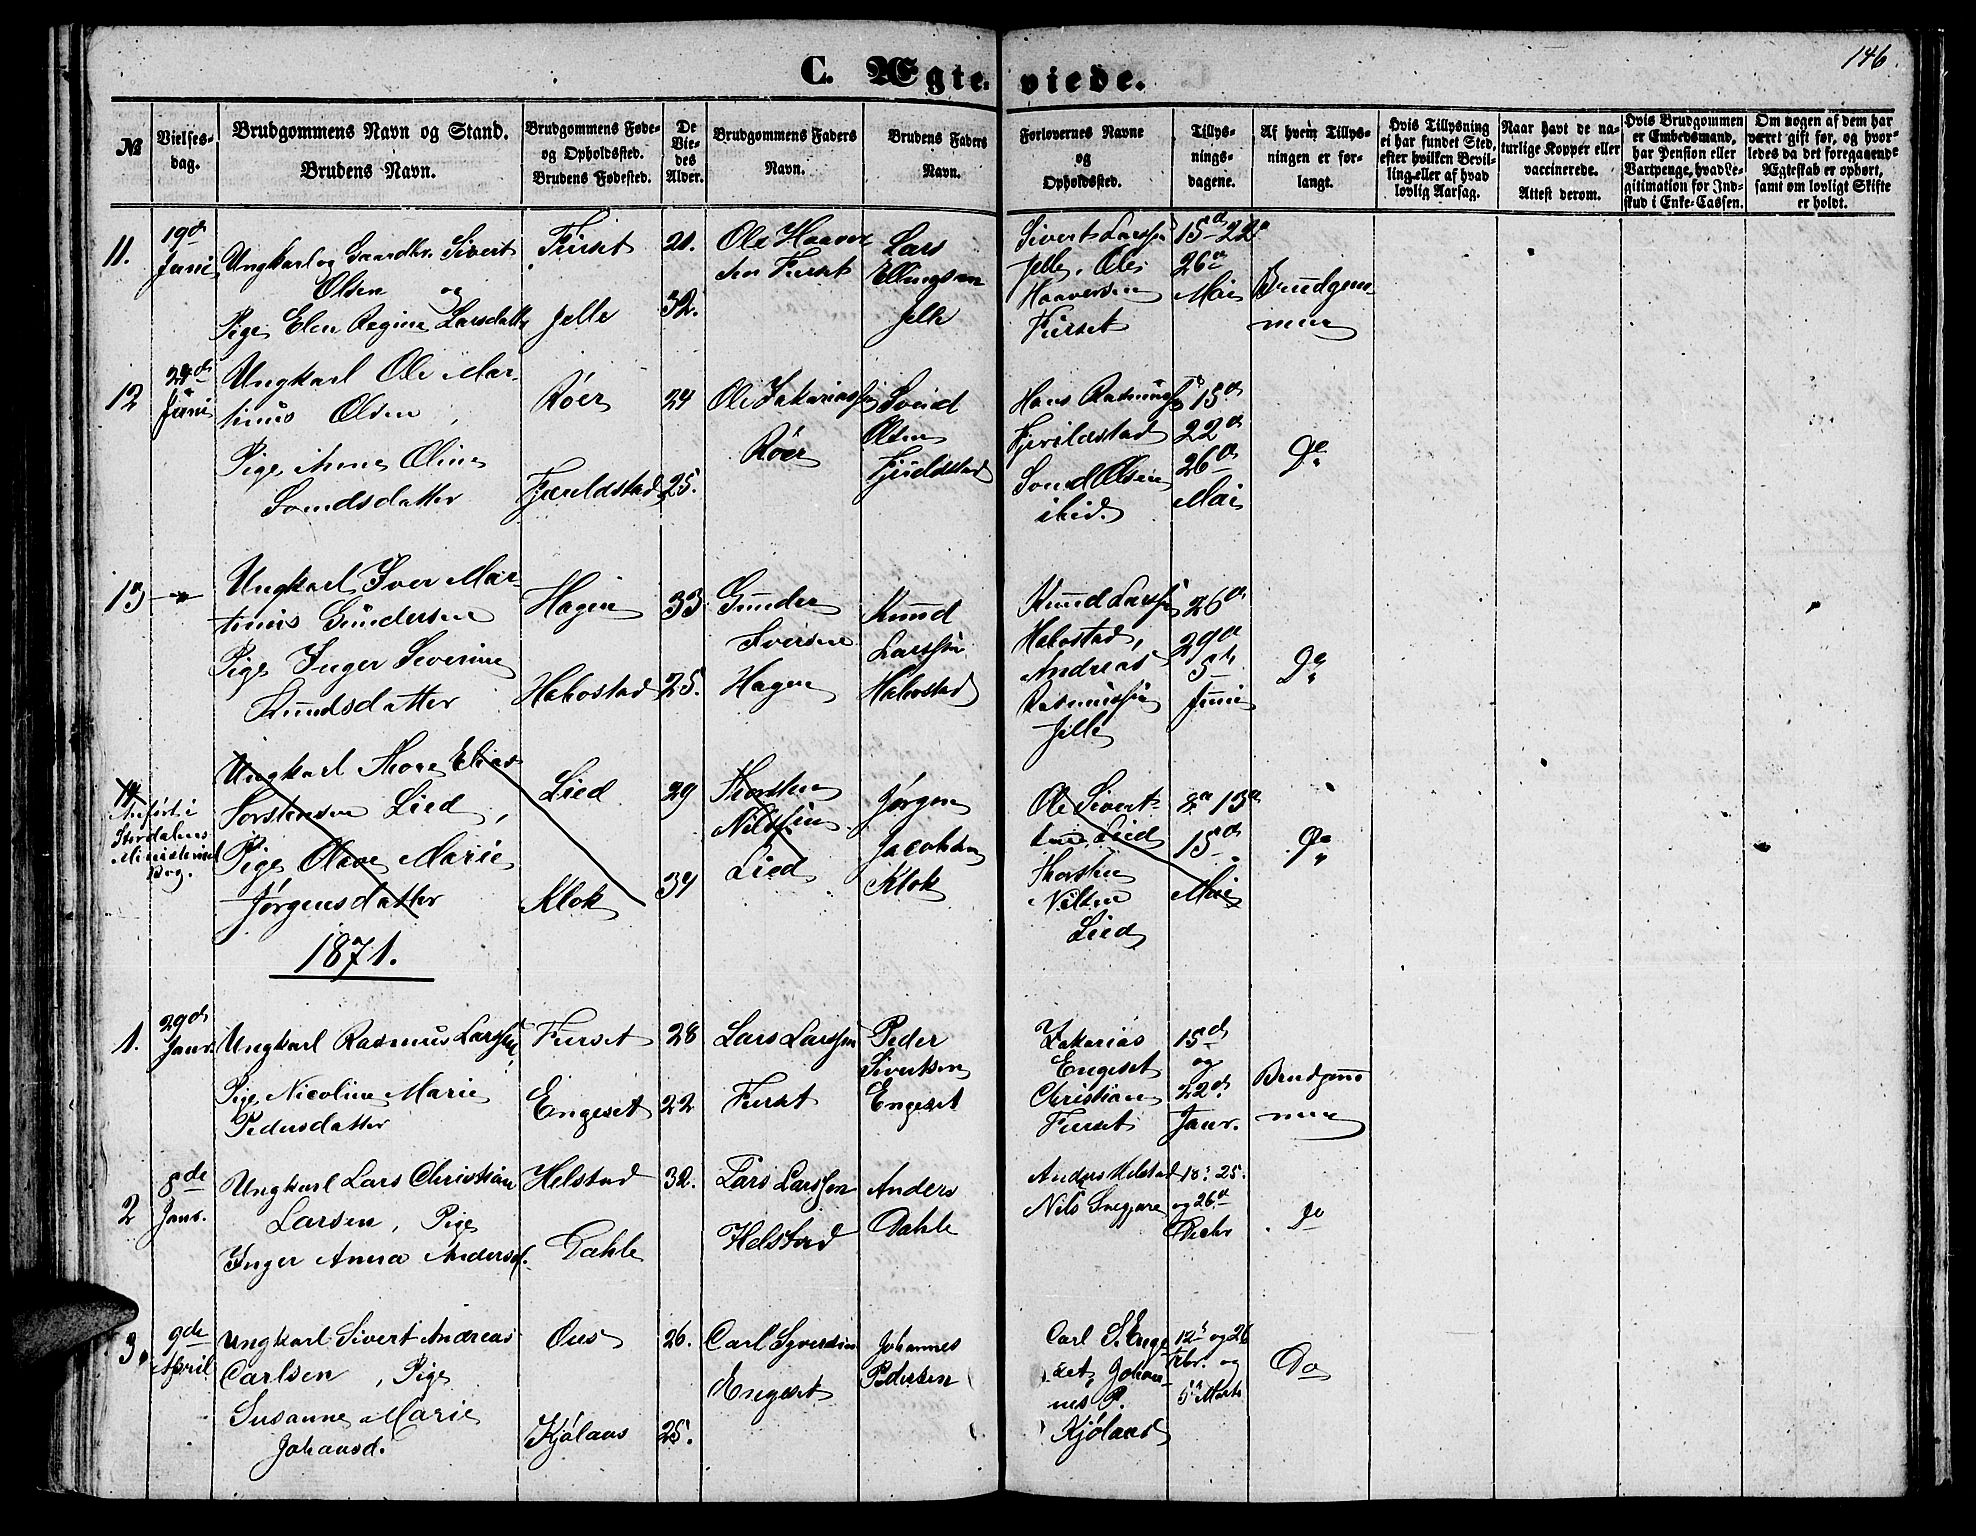 146.
C. Ægteviede.
№
Vielsesdag.
Brudgommens Navn og Stand.
Brudens Navn.
Brudgommens Føde-
og Opholdssted.
Brudens Fødested.
De
Vie-
des
Alder.
Brudgommens Faders
Navn.
Brudens Faders
Navn.
Forlovernes Navne
og
Opholdssted.
Tillys-
nings-
dagene.
Af hvem Tillys-
ningen er for-
langt.
Hvis Tillysning
ei har fundet Sted,
efter hvilken Bevil-
ling eller af hvad
lovlig Aarsag.
Naar havt de na-
turlige Kopper eller
vaccinerede.
Attest derom.
Hvis Brudgommen
er Embedsmand,
har Pension eller
Vartpenge, hvad Le-
gitimation for Ind-
skud i Enke-Cassen.
Om nogen af dem har
været gift før, og hvor-
ledes da det foregaaende
Ægteskab er ophørt,
samt om lovligt Skifte
er holdt.
11.
19de
Juni
Ungkarl og Gaardbr. Sivert
Olsen og
Pige Elen Regine Larsdatter
Furset
Jelle
21.
32.
Ole Haaver
sen Furset
Lars
Ellingsen
Jelle
Sivert Larssen
Jelle, Ole
Haaversen
Furset
15de 22de
26de
Mai
Brudgom-
men
12
Juni
Ungkarl Ole Mar-
tinus Olsen,
Pige Anne Oline
Svendsdatter
Røer
Fjæreldstad
24
25.
Ole Zakariassen
Røer
Svend
Olsen
Fjeldstad
Hans Rasmussen
Svend Olsen
ibid.
15de
22de
26de
Mai
Do
13
Ungkarl Iver Mar-
tinus Gundersen
Pige Inger Severine
Knudsdatter
Hagen
Habostad
33
25.
Gunder
Iversen
Hagen
Knud
Larssen
Habostad
Knud Larssen
Habostad,
Andreas
Rasmussen
Jelle
26de
29de
5te
Juni
Do
14
Anført i
Stordalens
Ministerial
Bog.
Ungkarl Thore Elias
Torstensen Lied,
Pige Olave Marie
Jørgensdatter
Lied
Klok
29
34
Thorsten
Nilssen
Lied
Jørgen
Jacobsen
Klok
Ole Sivert-
sen Lied
Thorsten
Nilsen
Lied
8de 13de
15de
Mai
Do
1871.
1.
29de
Janr.
Ungkarl Rasmus Larssen
Pige Nicoline Marie
Pedersdatter
Furset
Engeset
28
22
Lars Larssen
Furset
Peder
Sivertsen
Engeset
Zakarias
Engeset
Christian
Furset
15de
og
22de
Janr.
Brudgom-
men
2
8de
Janr.
Ungkarl Lars Christian
Larsen, Pige
Inger Anna Andersd.
Helstad
Dahle
32.
Lars Larssen
Helstad
Anders
Dahle
Anders Helstad
Nils
18. 25.
og 26de
Decbr
Do
3.
9de
April
Ungkarl Sivert Andreas
Carlsen, Pige
Susanne Marie
Johansd.
Ous
Kjølaas
26.
25.
Carl Syvertsen
Engeset
Johannes
Pedersen
Carl S. Enge-
set, Johan-
nes P.
Kjølaas
12te og 26
Febr. og
5te Marts
Do